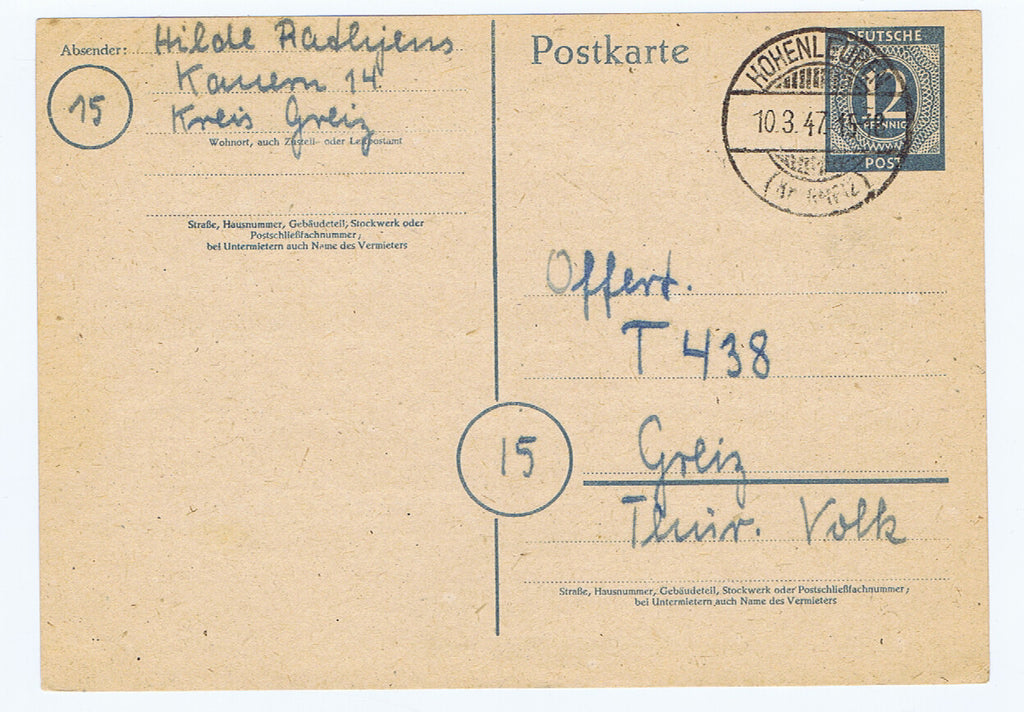 Absender: Hilde Rathjens
15
Kauern 14
Kreis Greiz
Wohnort, auch Zustell- oder Leitpostamt
Straße, Hausnummer, Gebäudeteil, Stockwerk oder
Postschließfachnummer;
bei Untermietern auch Name des Vermieters
Postkarte
HOHENLEUBEN
10.3.47. 15-18
(Kr. Greiz)
DEUTSCHE
12
PFENNIG
POST
Offert.
T 438
15
Greiz
Thür. Volk
Straße, Hausnummer, Gebäudeteil, Stockwerk oder Postschließfachnummer;
bei Untermietern auch Name des Vermieters